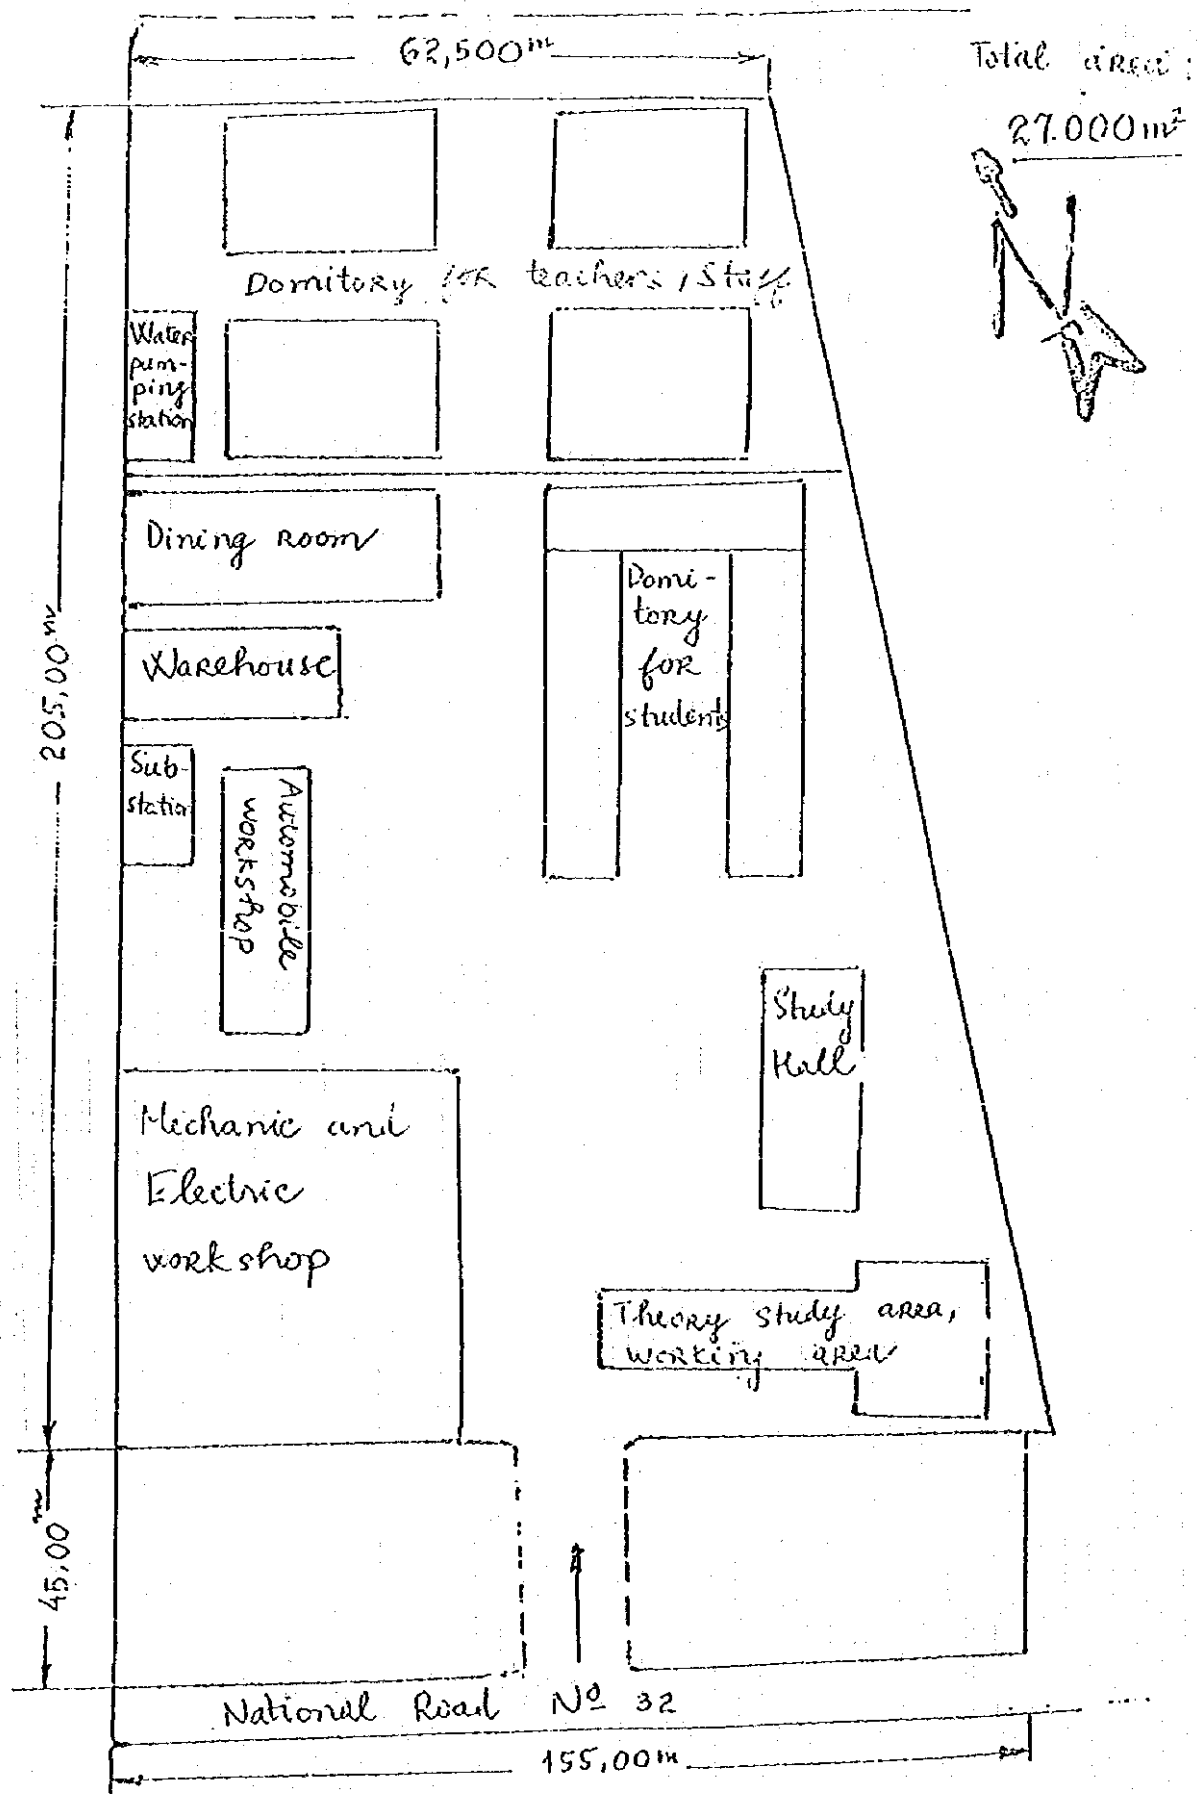 62,500m
Total area:
27.000m²
N
Domitory for teachers, Staff
Water
pum-
ping
station
Dining room
Domi-
tory
for
students
Warehouse
205,00m
Sub-
station
Automobile
workshop
Study
Hall
Mechanic and
Electric
workshop
Theory study area,
working area
45,00m
National Road Nº 32
155,00m